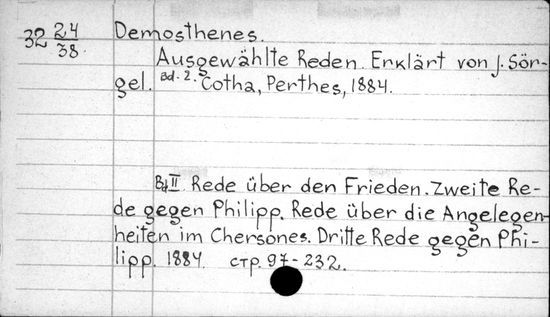 32 24/38. Demosthenes.
Ausgewählte Reden. Erklärt von J. Sör-
gel. Bd. 2. Gotha, Perthes, 1884.
Bd II. Rede über den Frieden. Zweite Re-
de gegen Philipp. Rede über die Angelegen-
heiten im Chersones. Dritte Rede gegen Phi-
lipp. 1884. стр. 97-232.